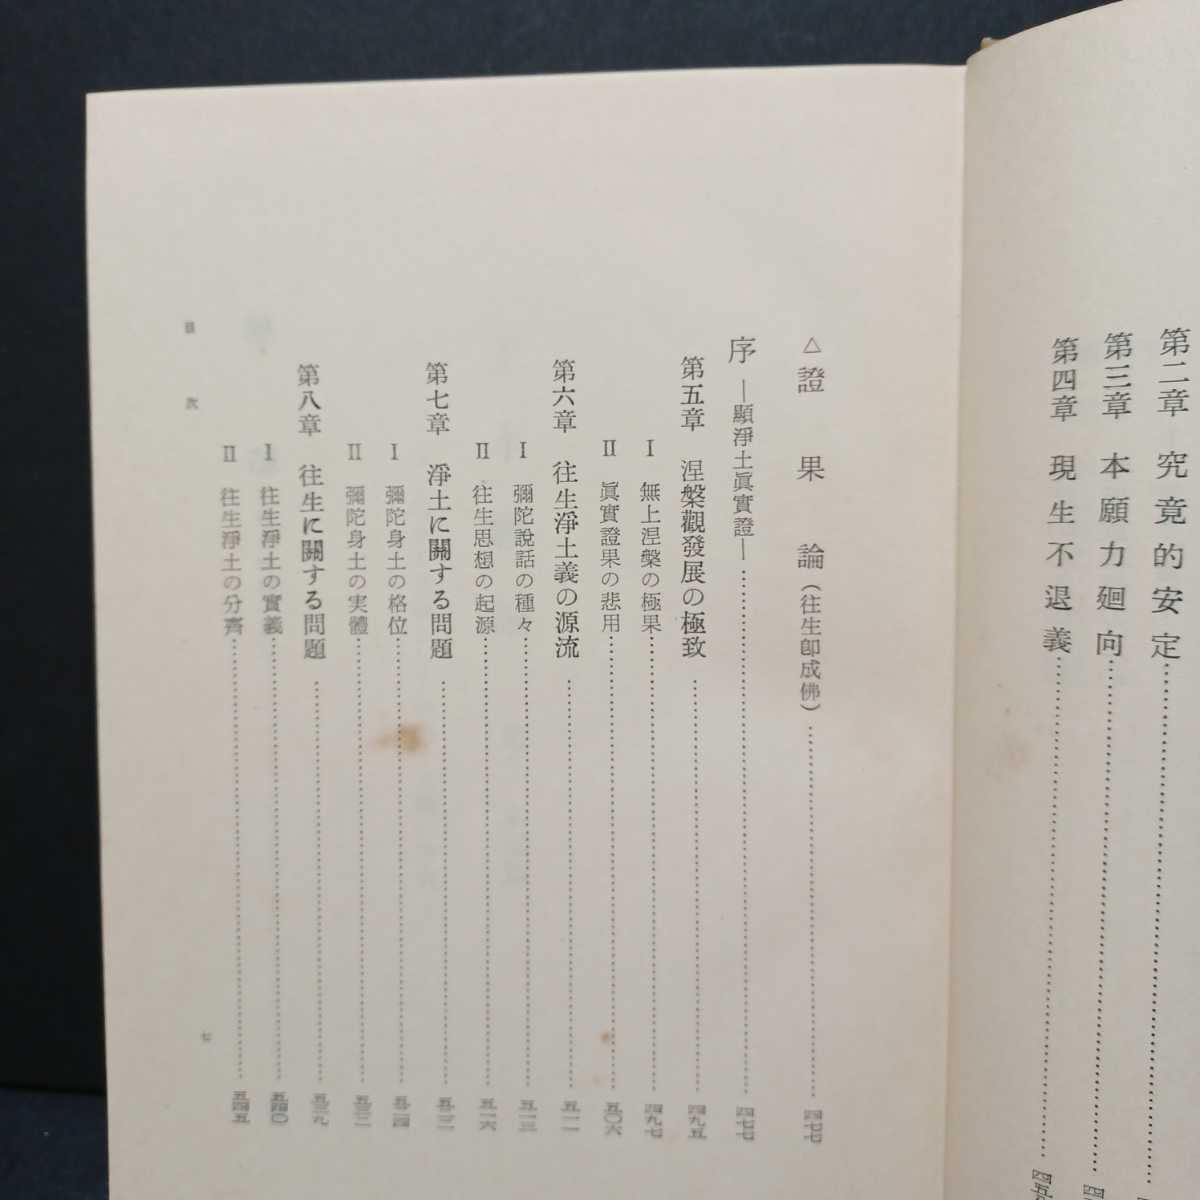 第二章 究竟的安定
第三章 本願力廻向
第四章 現生不退義
△證果論(往生卽成佛)……四七七
序―顯淨土眞實證―……四七七
第五章 涅槃觀發展の極致……四九五
I 無上涅槃の極果……四九七
II 眞實證果の悲用……五〇六
第六章 往生淨土義の源流……五一一
I 彌陀說話の種々……五一三
II 往生思想の起源……五一六
第七章 淨土に關する問題
I 彌陀身土の格位……五二四
II 彌陀身土の実體
第八章 往生に關する問題……五三九
I 往生淨土の實義……五四〇
II 往生淨土の分齊……五四五
目次
七